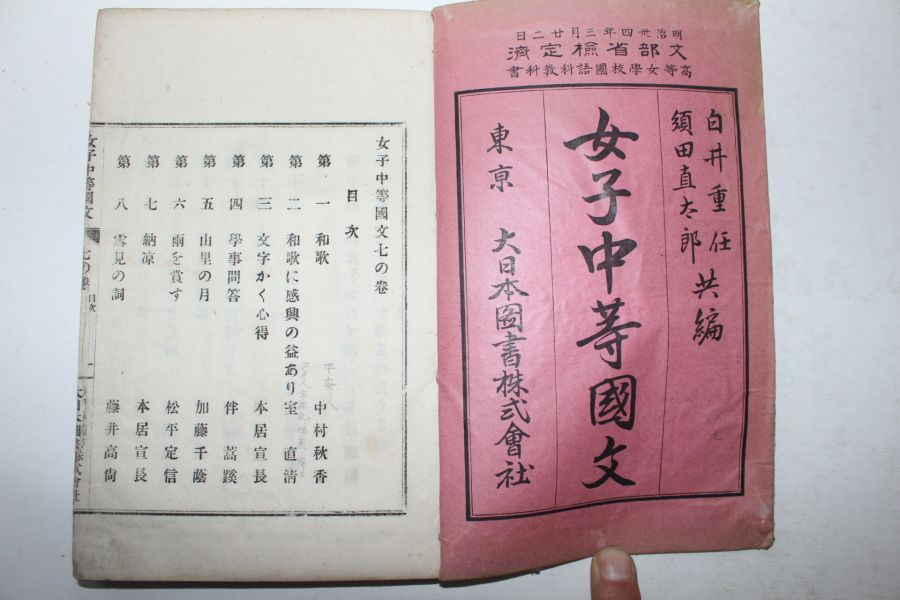 明治卅四年三月廿二日
文部省檢定濟
高等女學校國語科教科書
白井重任
須田直太郎
共編
女子中等國文
東京 大日本圖書株式會社
女子中等國文七の卷
目次
第一 和歌 中村秋香
第二 和歌に感興の益あり 室直淸
第三 文字かく心得 本居宣長
第四 學事問答 伴蒿蹊
第五 山里の月 加藤千蔭
第六 雨を賞す 松平定信
第七 納凉 本居宣長
第八 雪見の詞 藤井高尙
女子中等國文 七の卷 目次 一